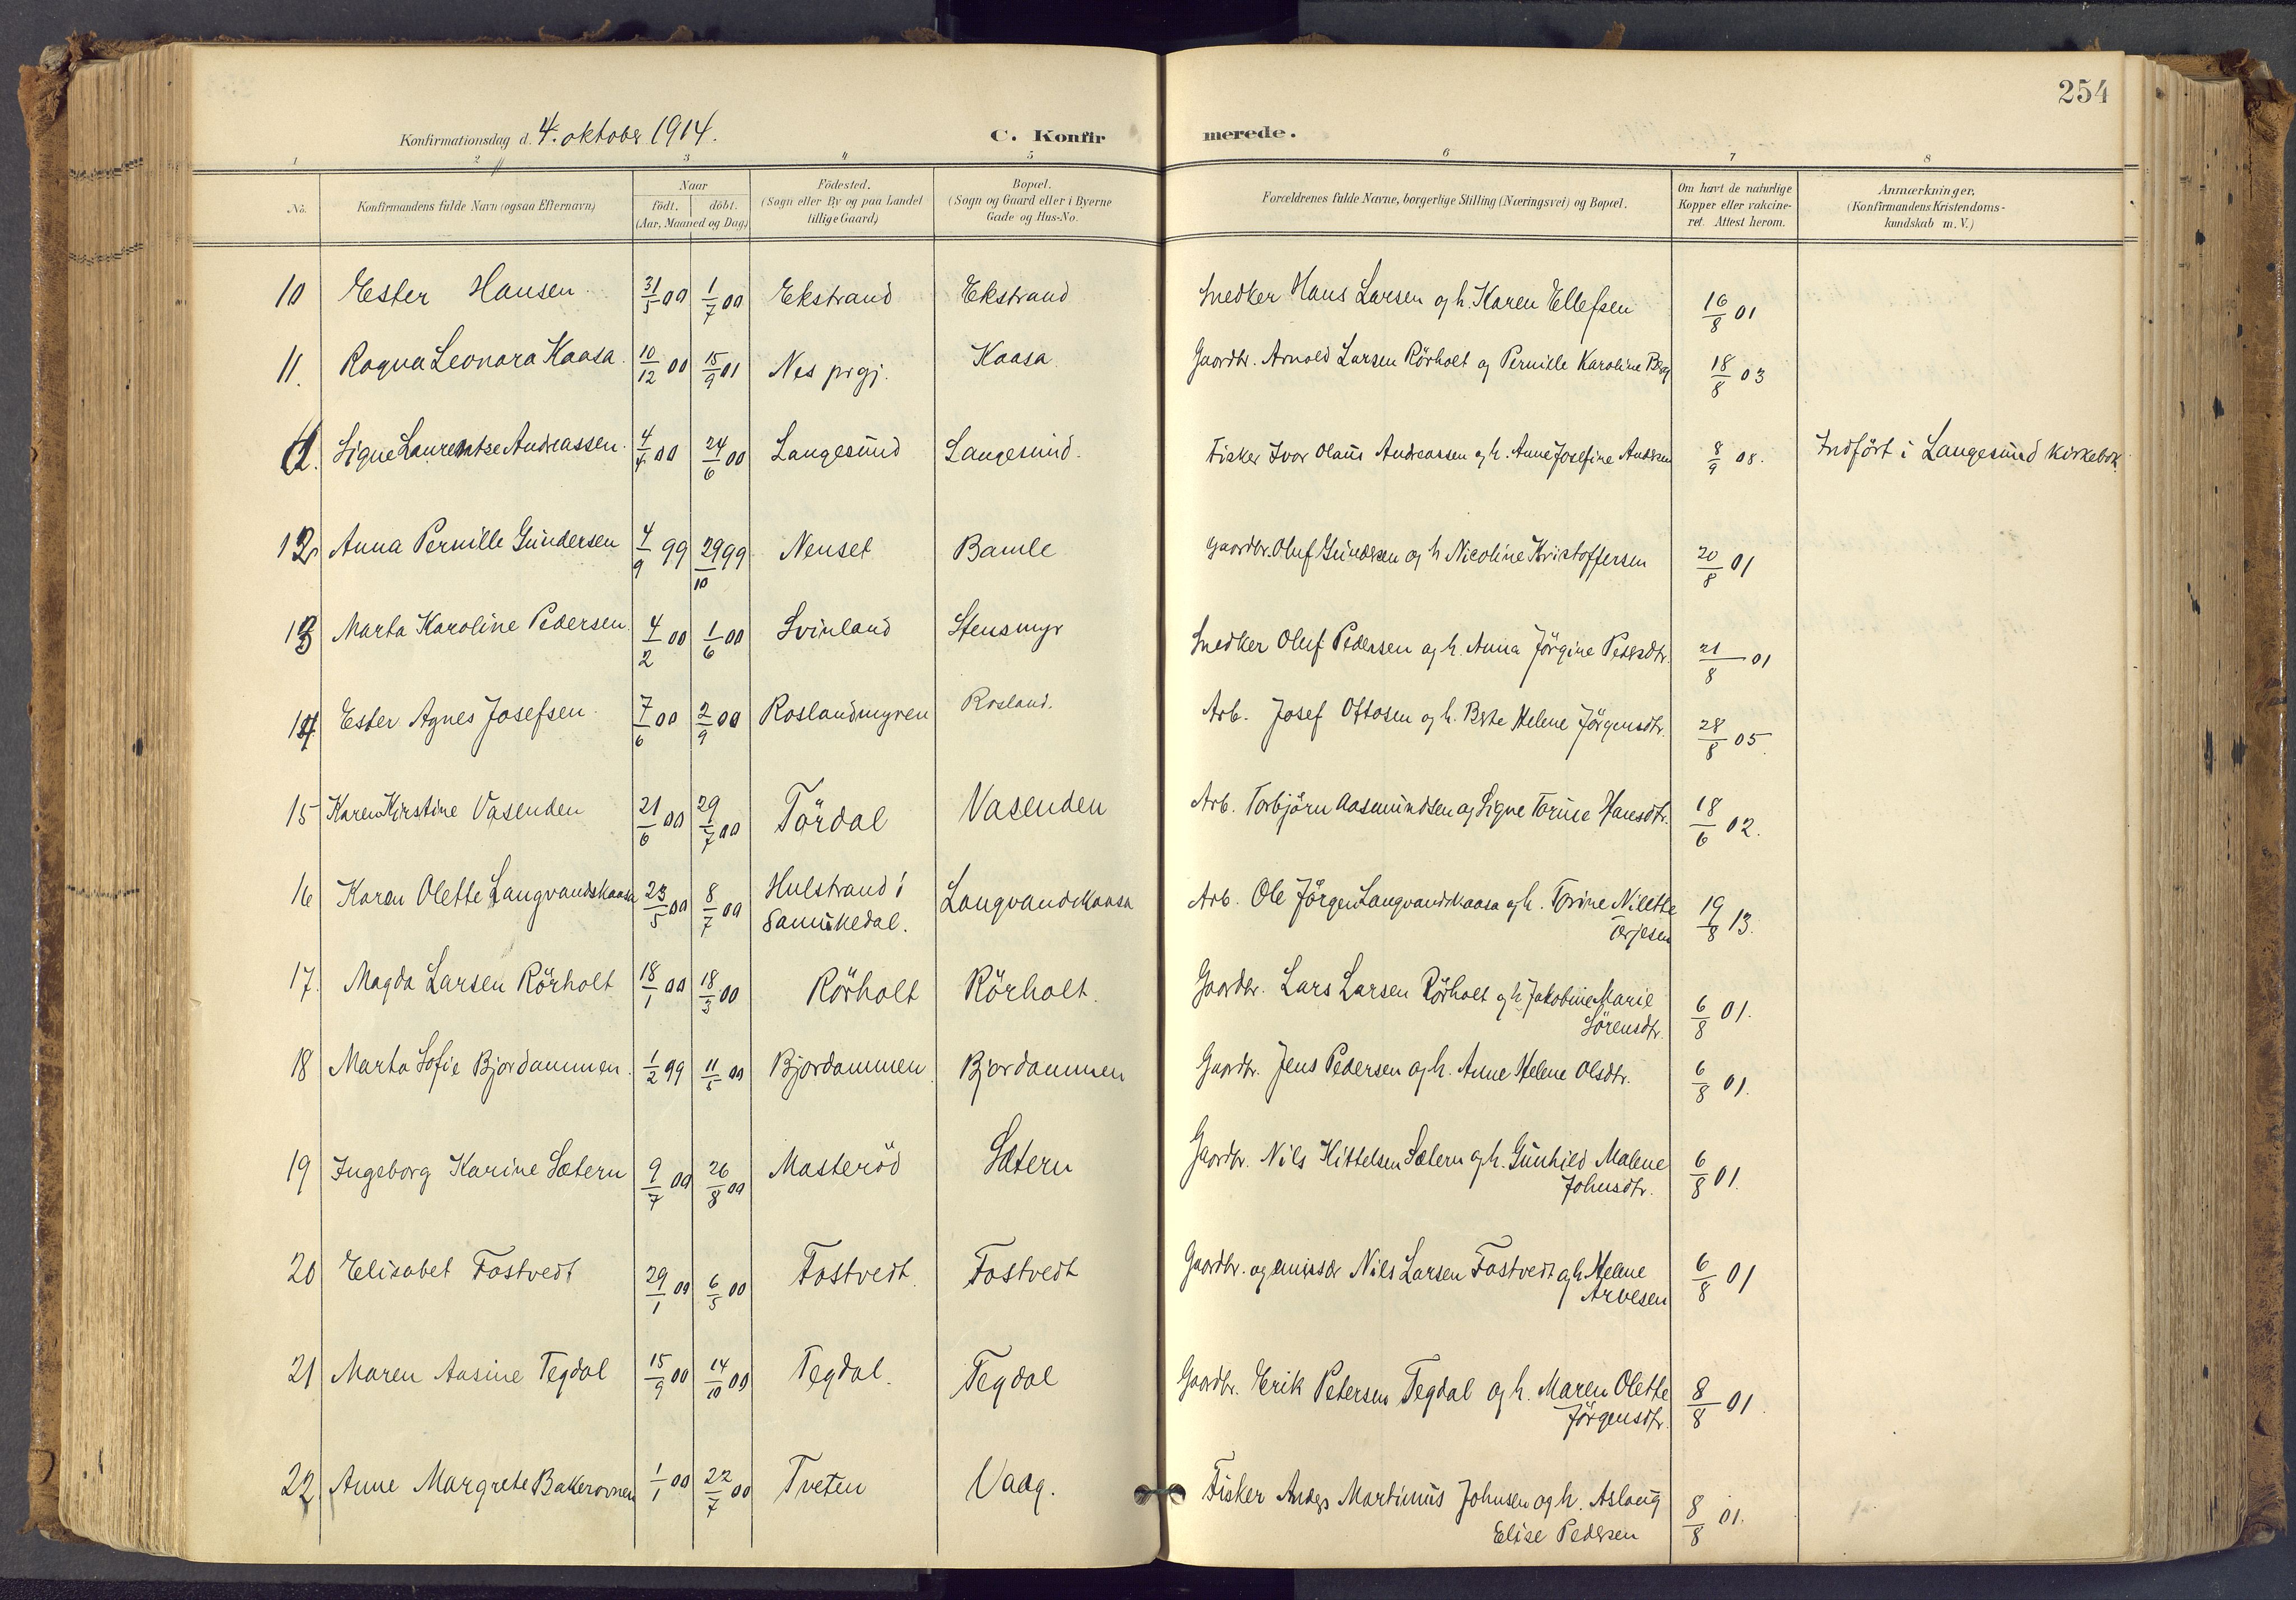 254
Konfirmationsdag d. 4. oktober 1914.
C. Konfirmerede.
1 2 3 4 5 6 7 8
No.
Konfirmandens fulde Navn (ogsaa Efternavn)
Naar
födt. döbt.
(Aar, Maaned og Dag)
Födested.
(Sogn eller By og paa Landet
tillige Gaard)
Bopæl.
(Sogn og Gaard eller i Byerne
Gade og Hus-No.
Forældrenes fulde Navne, borgerlige Stilling (Næringsvei) og Bopæl.
Om havt de naturlige
Kopper eller vakcine-
ret. Attest herom.
Anmærkninger.
(Konfirmandens Kristendoms-
kundskab m. V.)
10 Ester Hansen 31/5 00 1/7 00 Ekstrand Ekstrand Snedker Hans Larsen og h. Karen Ellefsen 16/8 01
11. Ragna Leonora Kaasa 10/12 00 15/9 01 Nes prgj. Kaasa Gaardbr. Arnold Larsen Rörholt og Pernille Karoline Berg 18/8 03
Signe Laurentse Andreassen 4/4 00 24/6 00 Langesund Langesund. Fisker Ivar Olaus Andreassen og h. Anne Josefine Andersen 8/9 08. Indfört i Langesund kirkebok
12 Anna Pernille Gundersen 4/9 99 29/10 99 Nenset Bamle Gaardbr. Oluf Gundersen og h Nicoline Kristoffersen 20/8 01
13 Marta Karoline Pedersen 4/2 00 1/6 00 Svinland Stensmyr Snedker Oluf Pedersen og h. Anna Jörgine Pedersdtr. 21/8 01
14 Ester Agnes Josefsen 7/6 00 2/9 00 Roslandmyren Rosland. Arb. Josef Ottosen og h. Berte Helene Jörgensdtr. 28/8 05.
15 Karen Kirstine Vasenden 21/6 00 29/7 00 Tördal Vasenden Arb. Torbjörn Aasmundsen og Signe Torine Hansdtr. 18/6 02.
16 Karen Olette Langvandskaasa 23/5 00 8/7 00 Hulstrand i
Sannikedal. Langvandskaasa Arb. Ole Jörgen Langvandskaasa og h. Torine Nilette
Terjesen 19/8 13.
17. Magda Larsen Rörholt 18/1 00 18/3 00 Rörholt Rörholt. Gaardbr. Lars Larsen Rörholt og h. Jakobine Marie
Sörensdtr. 6/8 01.
18 Marta Sofie Bjordammen. 1/2 99 11/5 99 Bjordammen Bjordammen Gaardbr. Jens Pedersen og h. Anne Helene Olsdtr. 6/8 01.
19 Ingeborg Karine Sætern 9/7 00 26/8 00 Masteröd Sætern Gaardbr. Nils Kittelsen Sætern og h. Gunhild Malene
Johnsdtr. 6/8 01.
20 Elisabet Fostvedt 29/1 00 6/5 00 Fostvedt. Fostvedt Gaardbr. og emissær Nils Larsen Fostvedt og h. Helene
Arvesen 6/8 01
21 Maren Aasine Tegdal 15/9 00 14/10 00 Tegdal. Tegdal Gaardbr. Erik Petersen Tegdal og h. Maren Olette
Jörgensdtr. 8/8 01.
22. Anne Margrete Bakerovnen 1/1 00 22/7 00 Tveten Vaag. Fisker Anders Martinus Johnsen og h. Aslaug
Elise Pedersen 8/8 01.